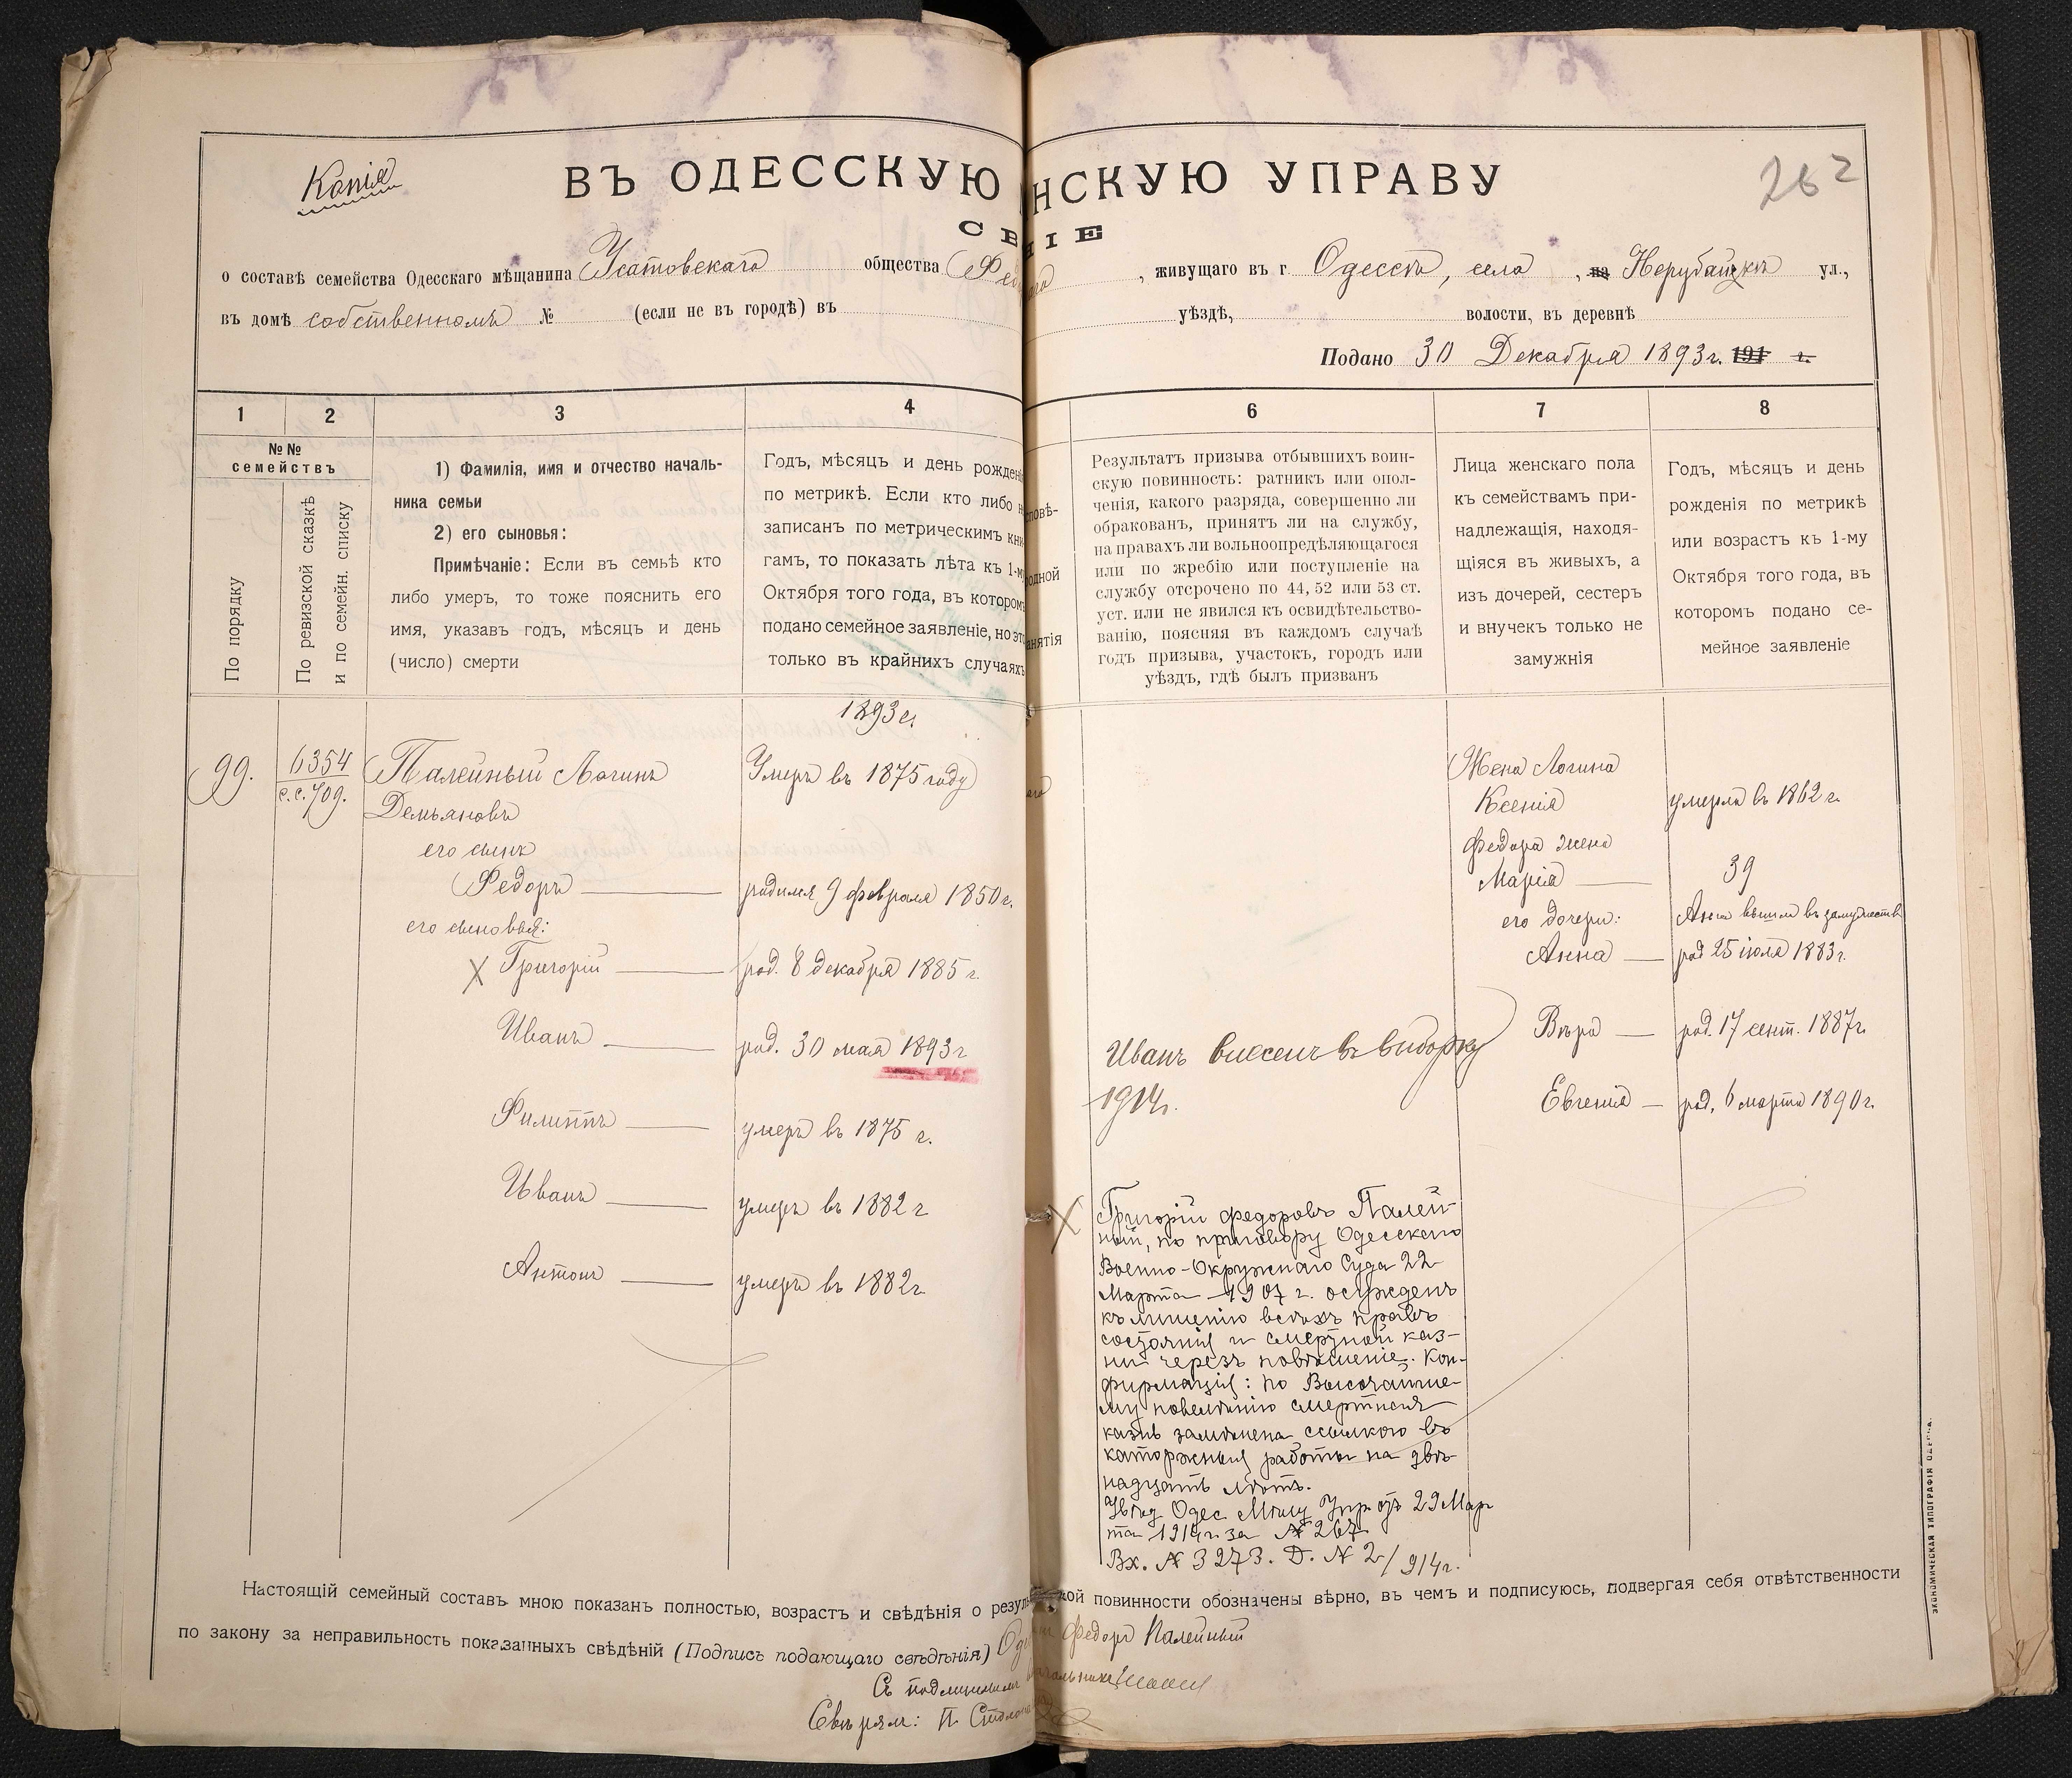 Копія
262
ВЪ ОДЕССКУЮ НСКУЮ УПРАВУ
СВ НІЕ
о составѣ семейства Одесскаго мѣщанина Усатовскаго общества , живущаго въ г. Одессѣ, села , на ул.,
въ домѣ собственномъ № (если не въ городѣ) въ уѣздѣ, волости, въ деревнѣ
Подано 30 Декабря 1893 г. 191 г.
1 2 3 4 6 7 8
№№
семействъ
По порядку
По ревизской сказкѣ
и по семейн. списку
1) Фамилія, имя и отчество началь-
ника семьи
2) его сыновья:
Примѣчаніе: Если въ семьѣ кто
либо умеръ, то тоже пояснить его
имя, указавъ годъ, мѣсяцъ и день
(число) смерти
Годъ, мѣсяцъ и день рожденія
по метрикѣ. Если кто либо н
записанъ по метрическимъ кни
гамъ, то показать лѣта къ 1-му
Октября того года, въ которомъ
подано семейное заявленіе, но это
только въ крайнихъ случаяхъ
повѣ-
одной
анятія
Результатъ призыва отбывшихъ воин-
скую повинность: ратникъ или опол-
ченія, какого разряда, совершенно ли
обракованъ, принятъ ли на службу,
на правахъ ли вольноопредѣляющагося
или по жребію или поступленіе на
службу отсрочено по 44, 52 или 53 ст.
уст. или не явился къ освидѣтельство-
ванію, поясняя въ каждомъ случаѣ
годъ призыва, участокъ, городъ или
уѣздъ, гдѣ былъ призванъ
Лица женскаго пола
къ семействамъ при-
надлежащія, находя-
щіяся въ живыхъ, а
изъ дочерей, сестеръ
и внучекъ только не
замужнія
Годъ, мѣсяцъ и день
рожденія по метрикѣ
или возрастъ къ 1-му
Октября того года, въ
которомъ подано се-
мейное заявленіе
1893 г.
99.
6354
с.с. 709.
Палейный Логинъ
Демьяновъ
Умеръ въ 1875 году
его сынъ
Федоръ — родился 9 февраля 1850 г.
его сыновья:
X Григорій — род. 8 декабря 1885 г.
Иванъ — род. 30 мая 1893 г
Филиппъ — умеръ въ 1875 г.
Иванъ — умеръ въ 1882 г
Антонъ — умеръ въ 1882 г
Иванъ внесенъ въ выборку
1914 г.
X Григорій Федоровъ Палей-
ный, по приговору Одесскаго
Военно-Окружнаго Суда 22
Марта 1907 г. осужденъ
къ лишенію всѣхъ правъ
состоянія и смертной каз-
ни черезъ повѣшеніе. Кон-
фирмація: по Высочайше-
му повелѣнію смертная
казнь замѣнена ссылкою въ
каторжныя работы на двѣ-
надцать лѣтъ.
Увѣд Одес Мѣщ Упр отъ 29 Мар
та 1914 г. за № 267
Вх. № 3273. Д. № 2/914 г.
Жена Логина
Ксенія умерла въ 1862 г.
Федора жена
Марія — 39
его дочери: Анна вышла въ замужество
Анна — род 25 іюля 1883 г.
Вѣра — род. 17 сент. 1887 г.
Евгенія — род. 6 марта 1890 г.
Настоящій семейный составъ мною показанъ полностью, возрастъ и свѣдѣнія о резуль ской повинности обозначены вѣрно, въ чемъ и подписуюсь, подвергая себя отвѣтственности
по закону за неправильность показанныхъ свѣдѣній (Подпись подающаго свѣдѣнія) Федоръ Палейный
Съ подлиннымъ
Свѣрял: П.
ЭКОНОМИЧЕСКАЯ ТИПОГРАФІЯ ОДЕССА.